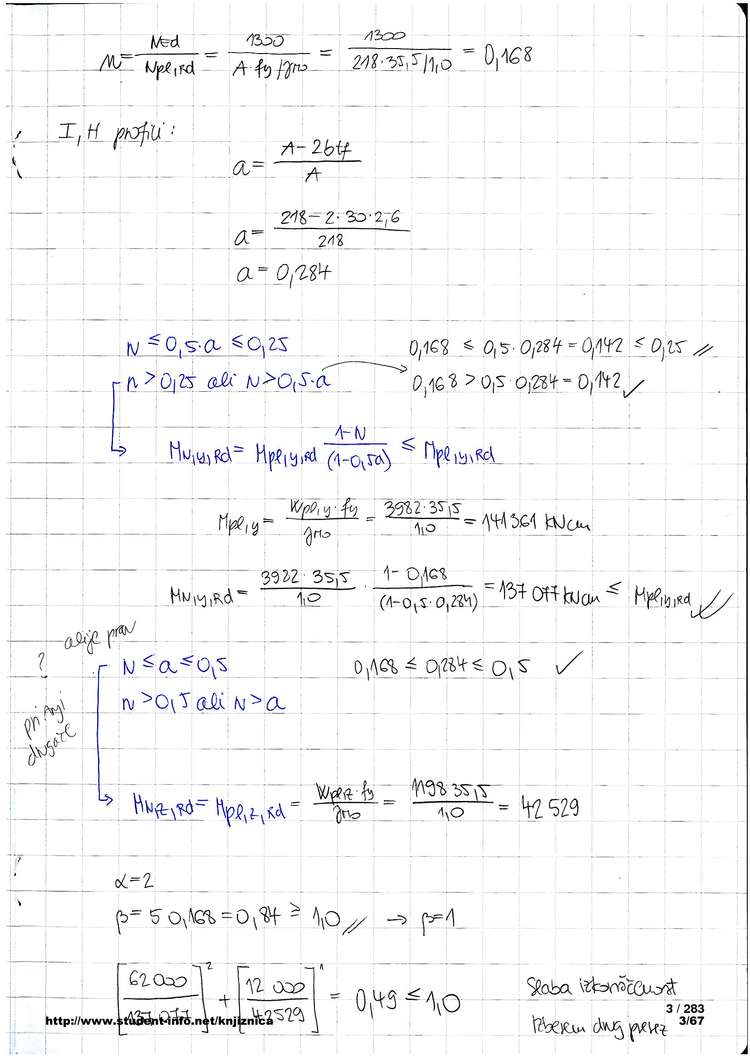 n = Ned / Npl,Rd = 1300 / A·fy/γM0 = 1300 / 218·35,5/1,0 = 0,168
I, H profili:
a = A-2btf / A
a = 218-2·30·2,6 / 218
a = 0,284
N ≤ 0,5·a ≤ 0,25 0,168 ≤ 0,5·0,284 = 0,142 ≤ 0,25 //
n > 0,25 ali N > 0,5·a 0,168 > 0,5·0,284 = 0,142 ✓
MN,y,Rd = Mpl,y,Rd 1-N / (1-0,5a) ≤ Mpl,y,Rd
Mpl,y = Wpl,y·fy / γM0 = 3982·35,5 / 1,0 = 141361 kNcm
MN,y,Rd = 3922·35,5 / 1,0 · 1-0,168 / (1-0,5·0,284) = 137 077 kNcm ≤ Mpl,y,Rd ✓
ali je prav
?
N ≤ a ≤ 0,5 0,168 ≤ 0,284 ≤ 0,5 ✓
n > 0,5 ali N > a
pri
drugače
MN,z,Rd = Mpl,z,Rd = Wpl,z·fy / γM0 = 1198 35,5 / 1,0 = 42 529
α=2
β = 5 0,168 = 0,84 ≥ 1,0 // → β=1
[62 000 / 137 077]² + [12 000 / 42529]¹ = 0,49 ≤ 1,0
Slaba izkoriščenost
Izberem drug prerez
http://www.student-info.net/knjiznica
3 / 283
3/67